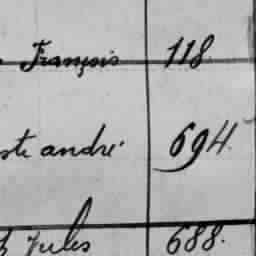 François 118.
ste andré 694.
Jules 688.